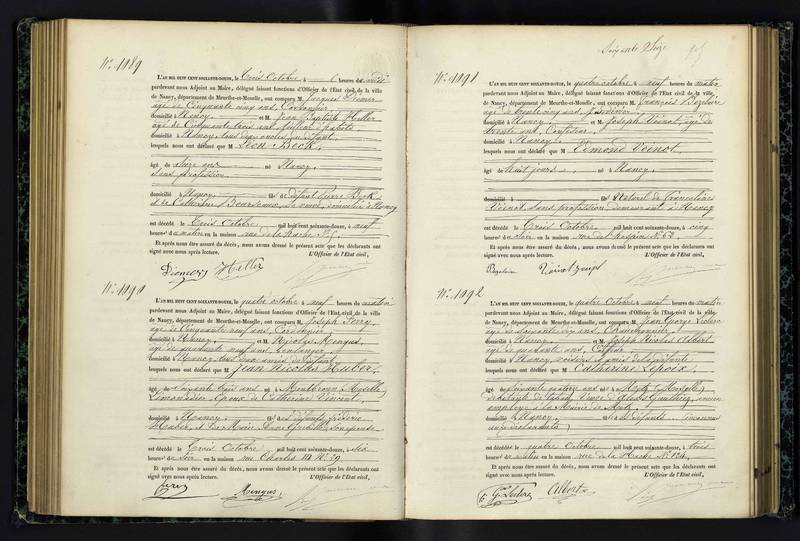 N° 1089
L'AN MIL HUIT CENT SOIXANTE-DOUZE, le trois Octobre à heures du
pardevant nous Adjoint au Maire, délégué faisant fonctions d'Officier de l'Etat civil de la ville
de Nancy, département de Meurthe-et-Moselle, ont comparu M. Jacques
âgé de Cinquante cinq ans,
domicilié à Nancy et M Jean Baptiste Heller
âgé de Cinquante trois ans, tailleur d'habits
domicilié à Nancy, tous deux du défunt
lesquels nous ont déclaré que M Léon Beck,
âgé de Seize ans né à Nancy,
Sans profession
domicilié à Nancy fils de défunt Pierre Beck
et de Catherine sa veuve, domiciliée à Nancy
est décédé le trois Octobre mil huit cent soixante-douze, à neuf
heures du matin en la maison rue de la
Et après nous être assuré du décès, nous avons dressé le présent acte que les déclarants ont
signé avec nous après lecture. L'Officier de l'Etat civil,
Heller
N° 1090
L'AN MIL HUIT CENT SOIXANTE-DOUZE, le quatre octobre à neuf heures du matin
pardevant nous Adjoint au Maire, délégué faisant fonctions d'Officier de l'Etat civil de la ville
de Nancy, département de Meurthe-et-Moselle, ont comparu M. Joseph
âgé de Cinquante neuf ans, Cordonnier
domicilié à Nancy, et M. Nicolas Mengus,
âgé de quarante neuf ans, boulanger,
domicilié à Nancy, tous deux amis du défunt
lesquels nous ont déclaré que M Jean Nicolas Huber,
âgé de Soixante trois ans né à Moselle
Limonadier, Epoux de Catherine Vincent,
domicilié à Nancy, fils de défunts
Huber, et de Marie Anne son épouse
est décédé le trois Octobre mil huit cent soixante-douze, à six
heures du soir en la maison rue Charles III N° 39
Et après nous être assuré du décès, nous avons dressé le présent acte que les déclarants ont
signé avec nous après lecture. L'Officier de l'Etat civil,
Mengus
Soixante Seize
N° 1091
L'AN MIL HUIT CENT SOIXANTE-DOUZE, le quatre octobre à neuf heures du matin
pardevant nous Adjoint au Maire, délégué faisant fonctions d'Officier de l'Etat civil de la ville
de Nancy, département de Meurthe-et-Moselle, ont comparu M. François
âgé de trente cinq ans, Jardinier
domicilié à Nancy, et M. Joseph Voinot, âgé de
trente ans, Confiseur
domicilié à Nancy,
lesquels nous ont déclaré que M Edmond Voinot,
âgé de huit jours né à Nancy,
domicilié à fils Naturel de Françoise
Voinot, sans profession, demeurant à Nancy
est décédé le trois Octobre mil huit cent soixante-douze, à cinq
heures du soir en la maison rue de l'hospice N° 62
Et après nous être assuré du décès, nous avons dressé le présent acte que les déclarants ont
signé avec nous après lecture. L'Officier de l'Etat civil,
N° 1092
L'AN MIL HUIT CENT SOIXANTE-DOUZE, le quatre Octobre à neuf heures du matin
pardevant nous Adjoint au Maire, délégué faisant fonctions d'Officier de l'Etat civil de la ville
de Nancy, département de Meurthe-et-Moselle, ont comparu M. Jean George Leclerc
âgé de soixante dix ans,
domicilié à Nancy et M. Joseph Nicolas Albert
âgé de quarante ans,
domicilié à Nancy, voisin et ami de la défunte
lesquels nous ont déclaré que M Catherine Lepoix,
âgée de Soixante quatorze ans née à Metz Moselle
Débitante de tabac, Veuve d'Alexis ancien
employé à la Mairie de Metz
domiciliée à Nancy fille de défunts inconnus
aux déclarants
est décédée le quatre Octobre mil huit cent soixante-douze, à trois
heures du matin en la maison rue de la N° 124
Et après nous être assuré du décès, nous avons dressé le présent acte que les déclarants ont
signé avec nous après lecture. L'Officier de l'Etat civil,
G. Leclerc Albert